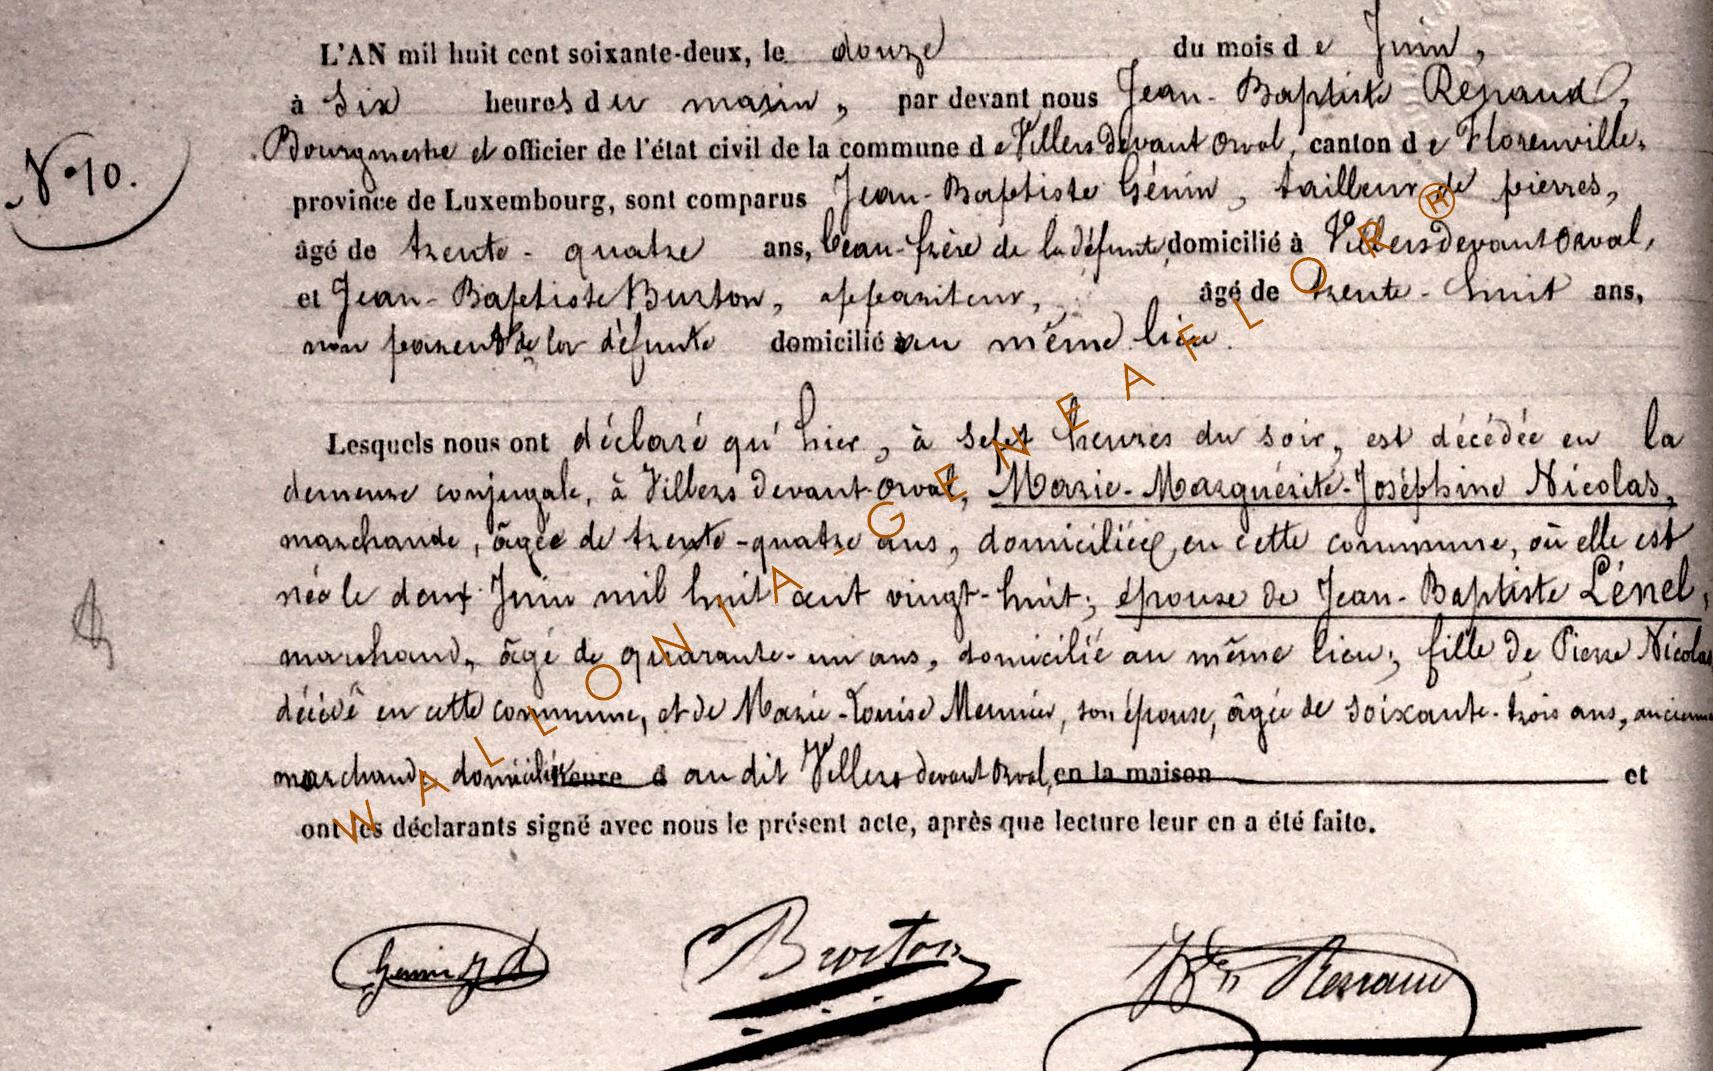 L'AN mil huit cent soixante-deux, le douze du mois de Juin,
à Six heures du matin, par devant nous Jean-Baptiste Renaud,
N°10.
Bourgmestre et officier de l'état civil de la commune de Villers devant Orval, canton de Florenville,
province de Luxembourg, sont comparus Jean-Baptiste Génin, tailleur de pierres,
âgé de trente-quatre ans, beau-frère de la défunte, domicilié à Villers devant Orval,
et Jean-Baptiste Burton, appariteur, âgé de trente-huit ans,
non parent de la défunte domicilié au même lieu.
Lesquels nous ont déclaré qu'hier, à sept heures du soir, est décédée en la
demeure conjugale, à Villers devant-Orval, Marie-Marguérite-Joséphine Nicolas,
marchande, âgée de trente-quatre ans, domiciliée, en cette commune, où elle est
née le deux Juin mil huit cent vingt-huit; épouse de Jean-Baptiste Lénel,
marchand, âgé de quarante-un ans, domicilié au même lieu; fille de Pierre Nicolas
décédé en cette commune, et de Marie-Louise Meunier, son épouse, âgée de soixante-trois ans, ancienne
marchande domiciliée au dit Villers devant Orval, en la maison et
ont les déclarants signé avec nous le présent acte, après que lecture leur en a été faite.
Genin Burton Renaud
WALLONIA-GENEAFLOR ®